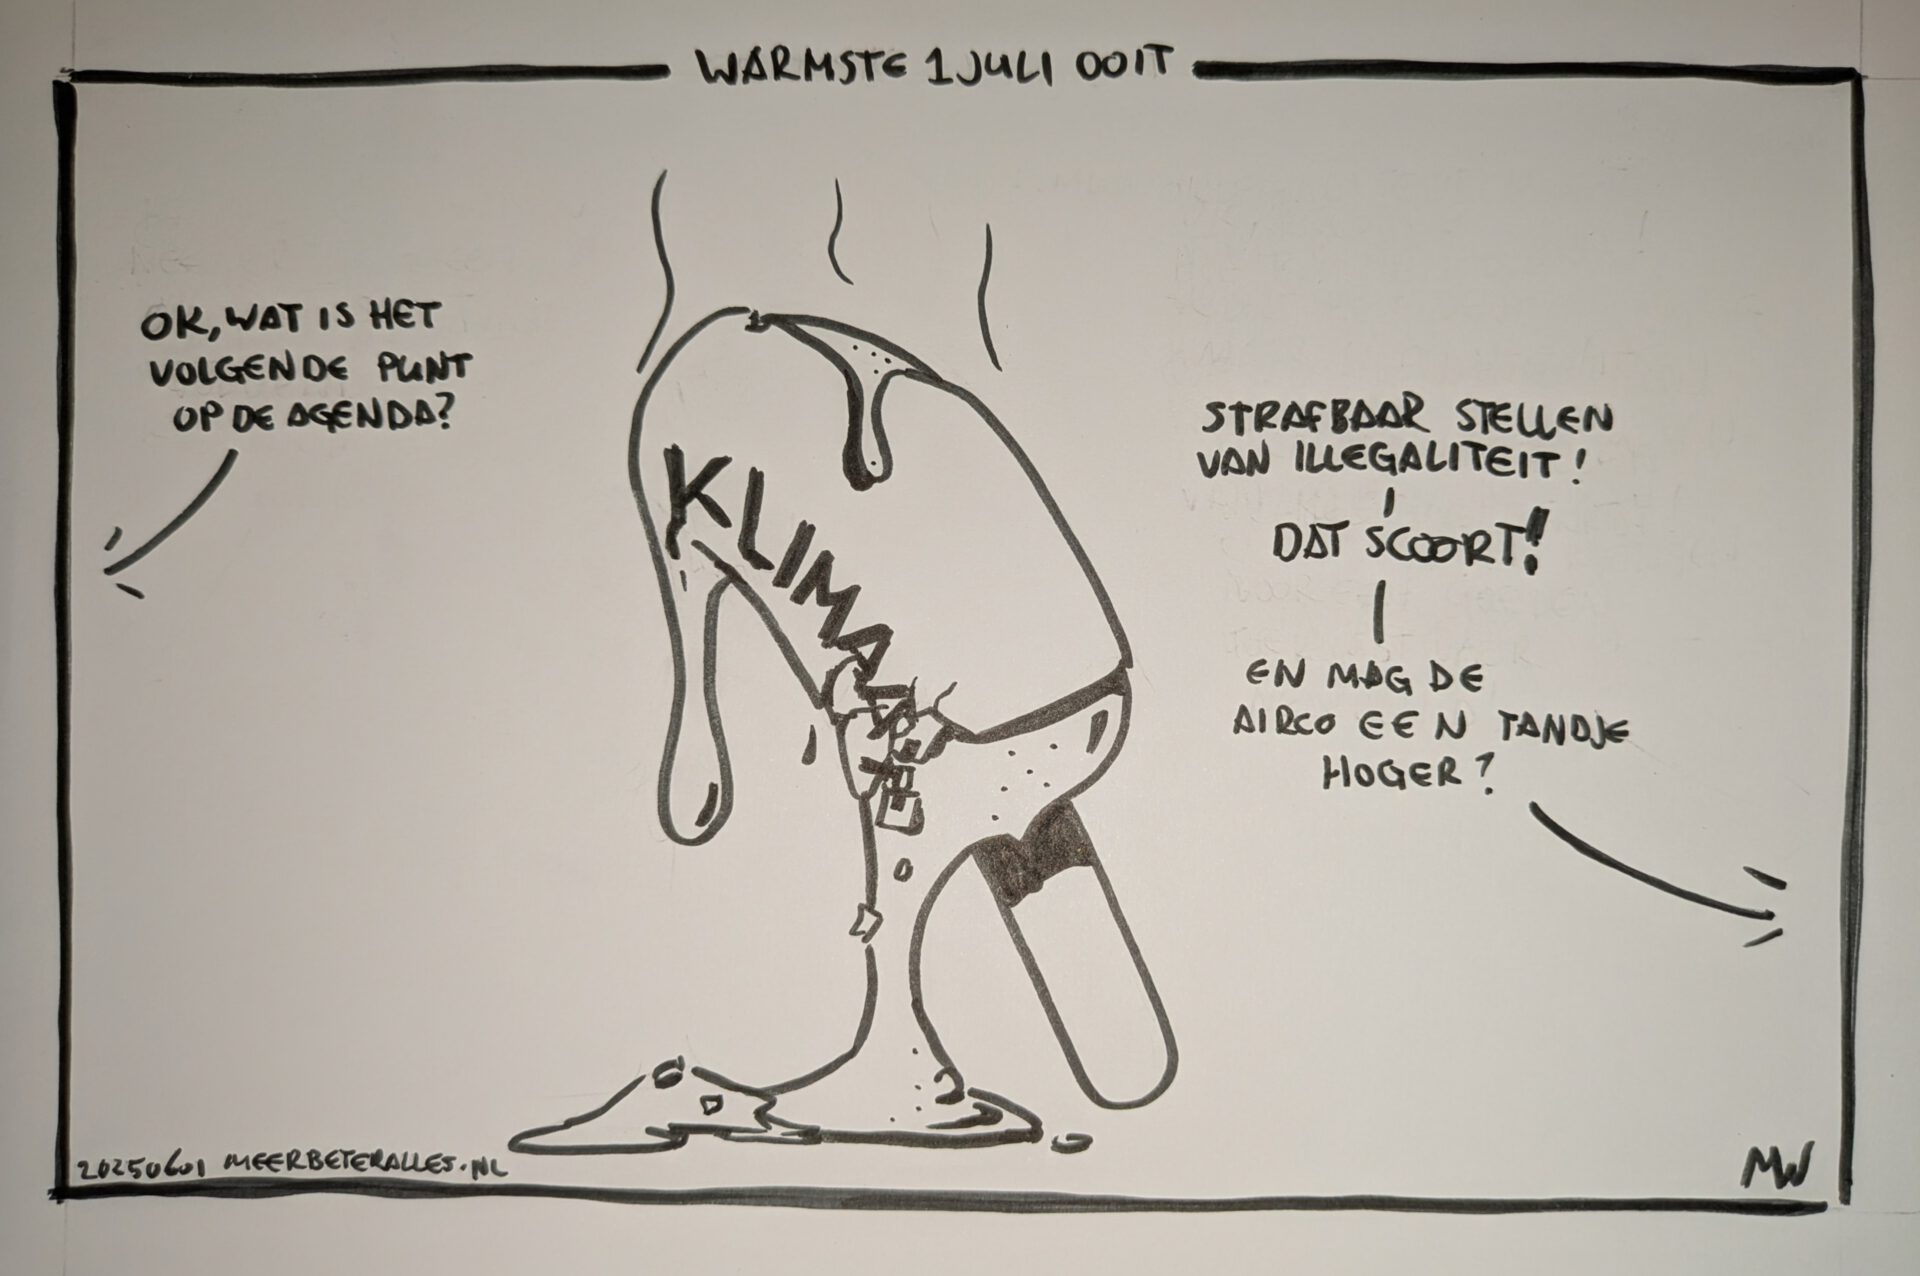 WARMSTE 1 JULI OOIT
OK, WAT IS HET
VOLGENDE PUNT
OP DE AGENDA?
KLIMA
STRAFBAAR STELLEN
VAN ILLEGALITEIT!
DAT SCOORT!!
EN MAG DE
AIRCO EEN TANDJE
HOGER?
20250601 MEERBETERALLES.NL
MW